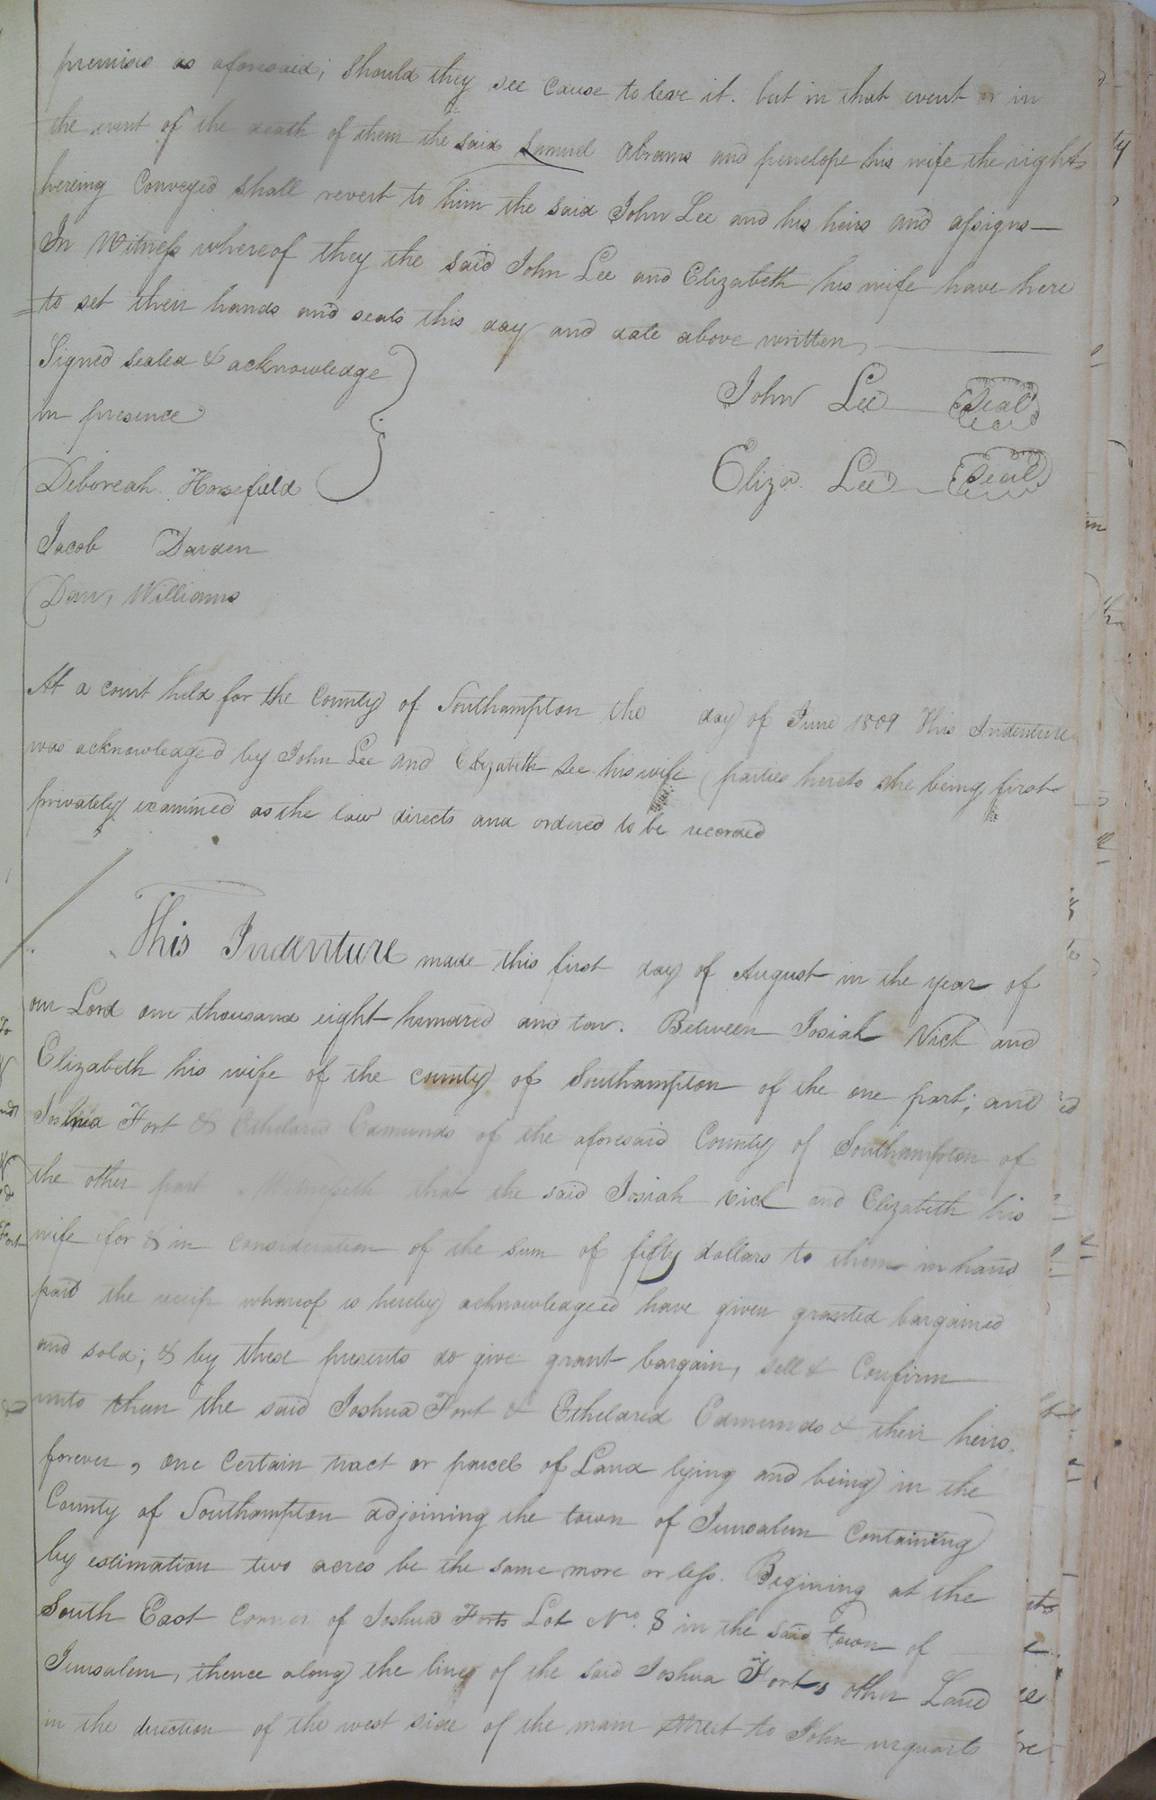 premises as aforesaid; should they see cause to leave it. but in that event or in
the event of the death of them the said Samuel Abrams and penelope his wife the rights
hereing Conveyed shall revert to him the said John Lee and his heirs and assigns—
In Witness whereof they the said John Lee and Elizabeth his wife have here
=to set their hands and seals this day and date above written,
Signed sealed & acknowledge
in presence
John Lee Seal
Deboreah Horsefield
Eliza. Lee Seal
Jacob Darden
Williams
At a court held for the County of Southampton the day of June 1809 This Indenture
was acknowledged by John Lee and Elizabeth Lee his wife parties hereto she being first
privately examined as the law directs and ordered to be recorded
This Indenture made this first day of August in the year of
our Lord one thousand eight hundred and tow. Between Josiah Vick and
Elizabeth his wife of the county of Southampton of the one part; and
Joshua Fort & Etheldred Edmunds of the aforesaid County of Southampton of
the other part. Witnesseth that the said Josiah Vick and Elizabeth his
wife for & in Consideration of the sum of fifty dollars to them in hand
paid the whareof is hereby acknowledgeed have given granted bargained
and sold; & by these presents do give grant bargain, sell & Confirm
unto them the said Joshua Fort & Etheldred Edmunds & their heirs.
forever, one Certain tract or parcel of Land lying and being in the
County of Southampton adjoining the town of Jerusalem Containing
by estimation two acres be the same more or less. Begining at the
South East Corner of Joshua Forts Lot No. 8 in the said Town of
Jerusalem, thence along the lines of the said Joshua Forts other Land
in the direction of the west side of the main street to John urquarts